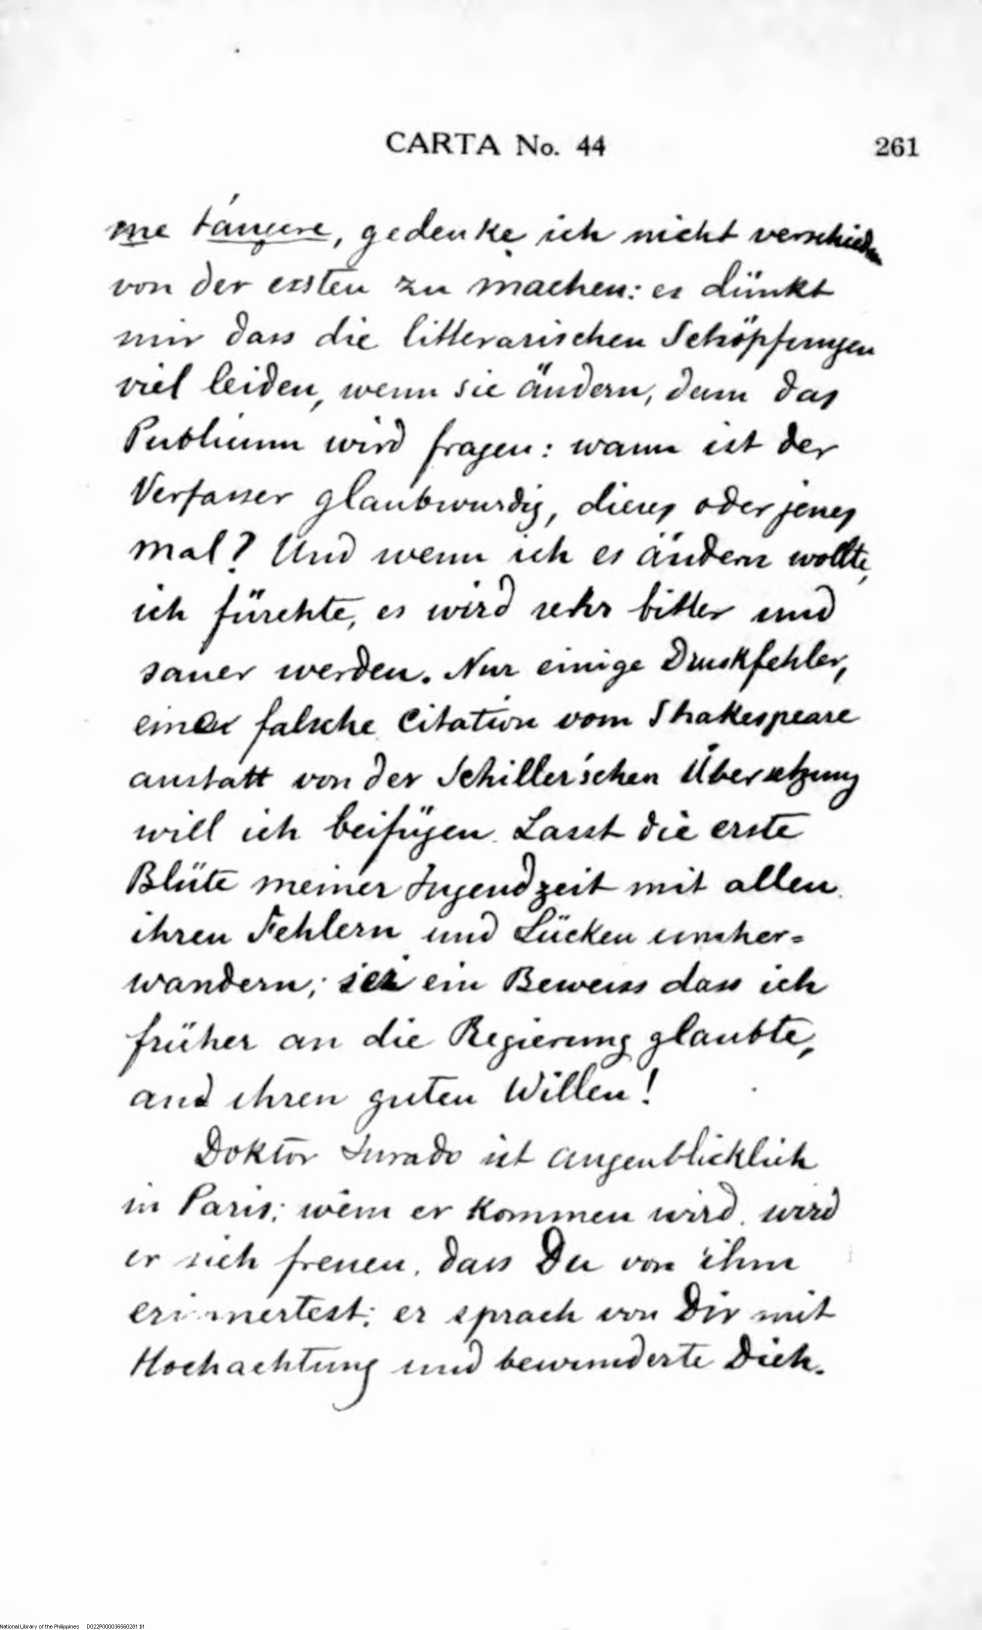 CARTA No. 44 261
me tángere, gedenke ich nicht verschieden
von der ersten zu machen: es dünkt
mir dass die litterarischen Schöpfungen
viel leiden, wenn sie ändern, denn das
Publicum wird fragen: wann ist der
Verfasser glaubwurdig, dieses oder jenes
mal? Und wenn ich es ändern wollte,
ich fürchte, es wird sehr bitter und
sauer werden. Nur einige Druckfehler,
eine falsche Citation vom Shakespeare
anstatt von der Schiller'schen Übersetzung
will ich beifügen. Lasst die erste
Blüte meiner Jugendzeit mit allen
ihren Fehlern und Lücken umher-
wandern; sei ein Beweiss dass ich
früher an die Regierung glaubte,
and ihren guten Willen!
Doktor Jurado ist augenblicklich
in Paris; wenn er kommen wird, wird
er sich freuen, dass Du von ihm
erinnertest; er sprach von Dir mit
Hochachtung und bewunderte Dich.
National Library of the Philippines